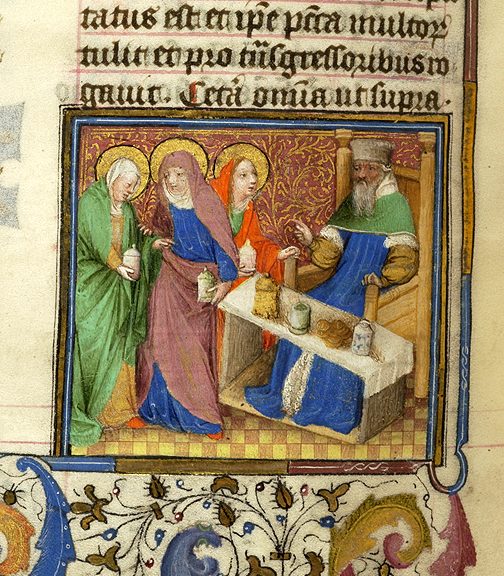 tatus est et ip̄e pc̄ca multoꝝ
tulit et pro t̄nsgressoribus ro
gauit. Cet̄a om̄ia ut supra.